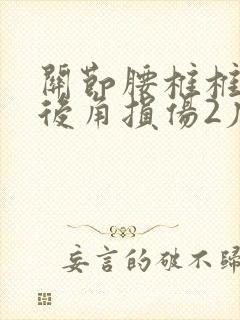 關節腰柱柱
後角損傷2
妄言的破不歸